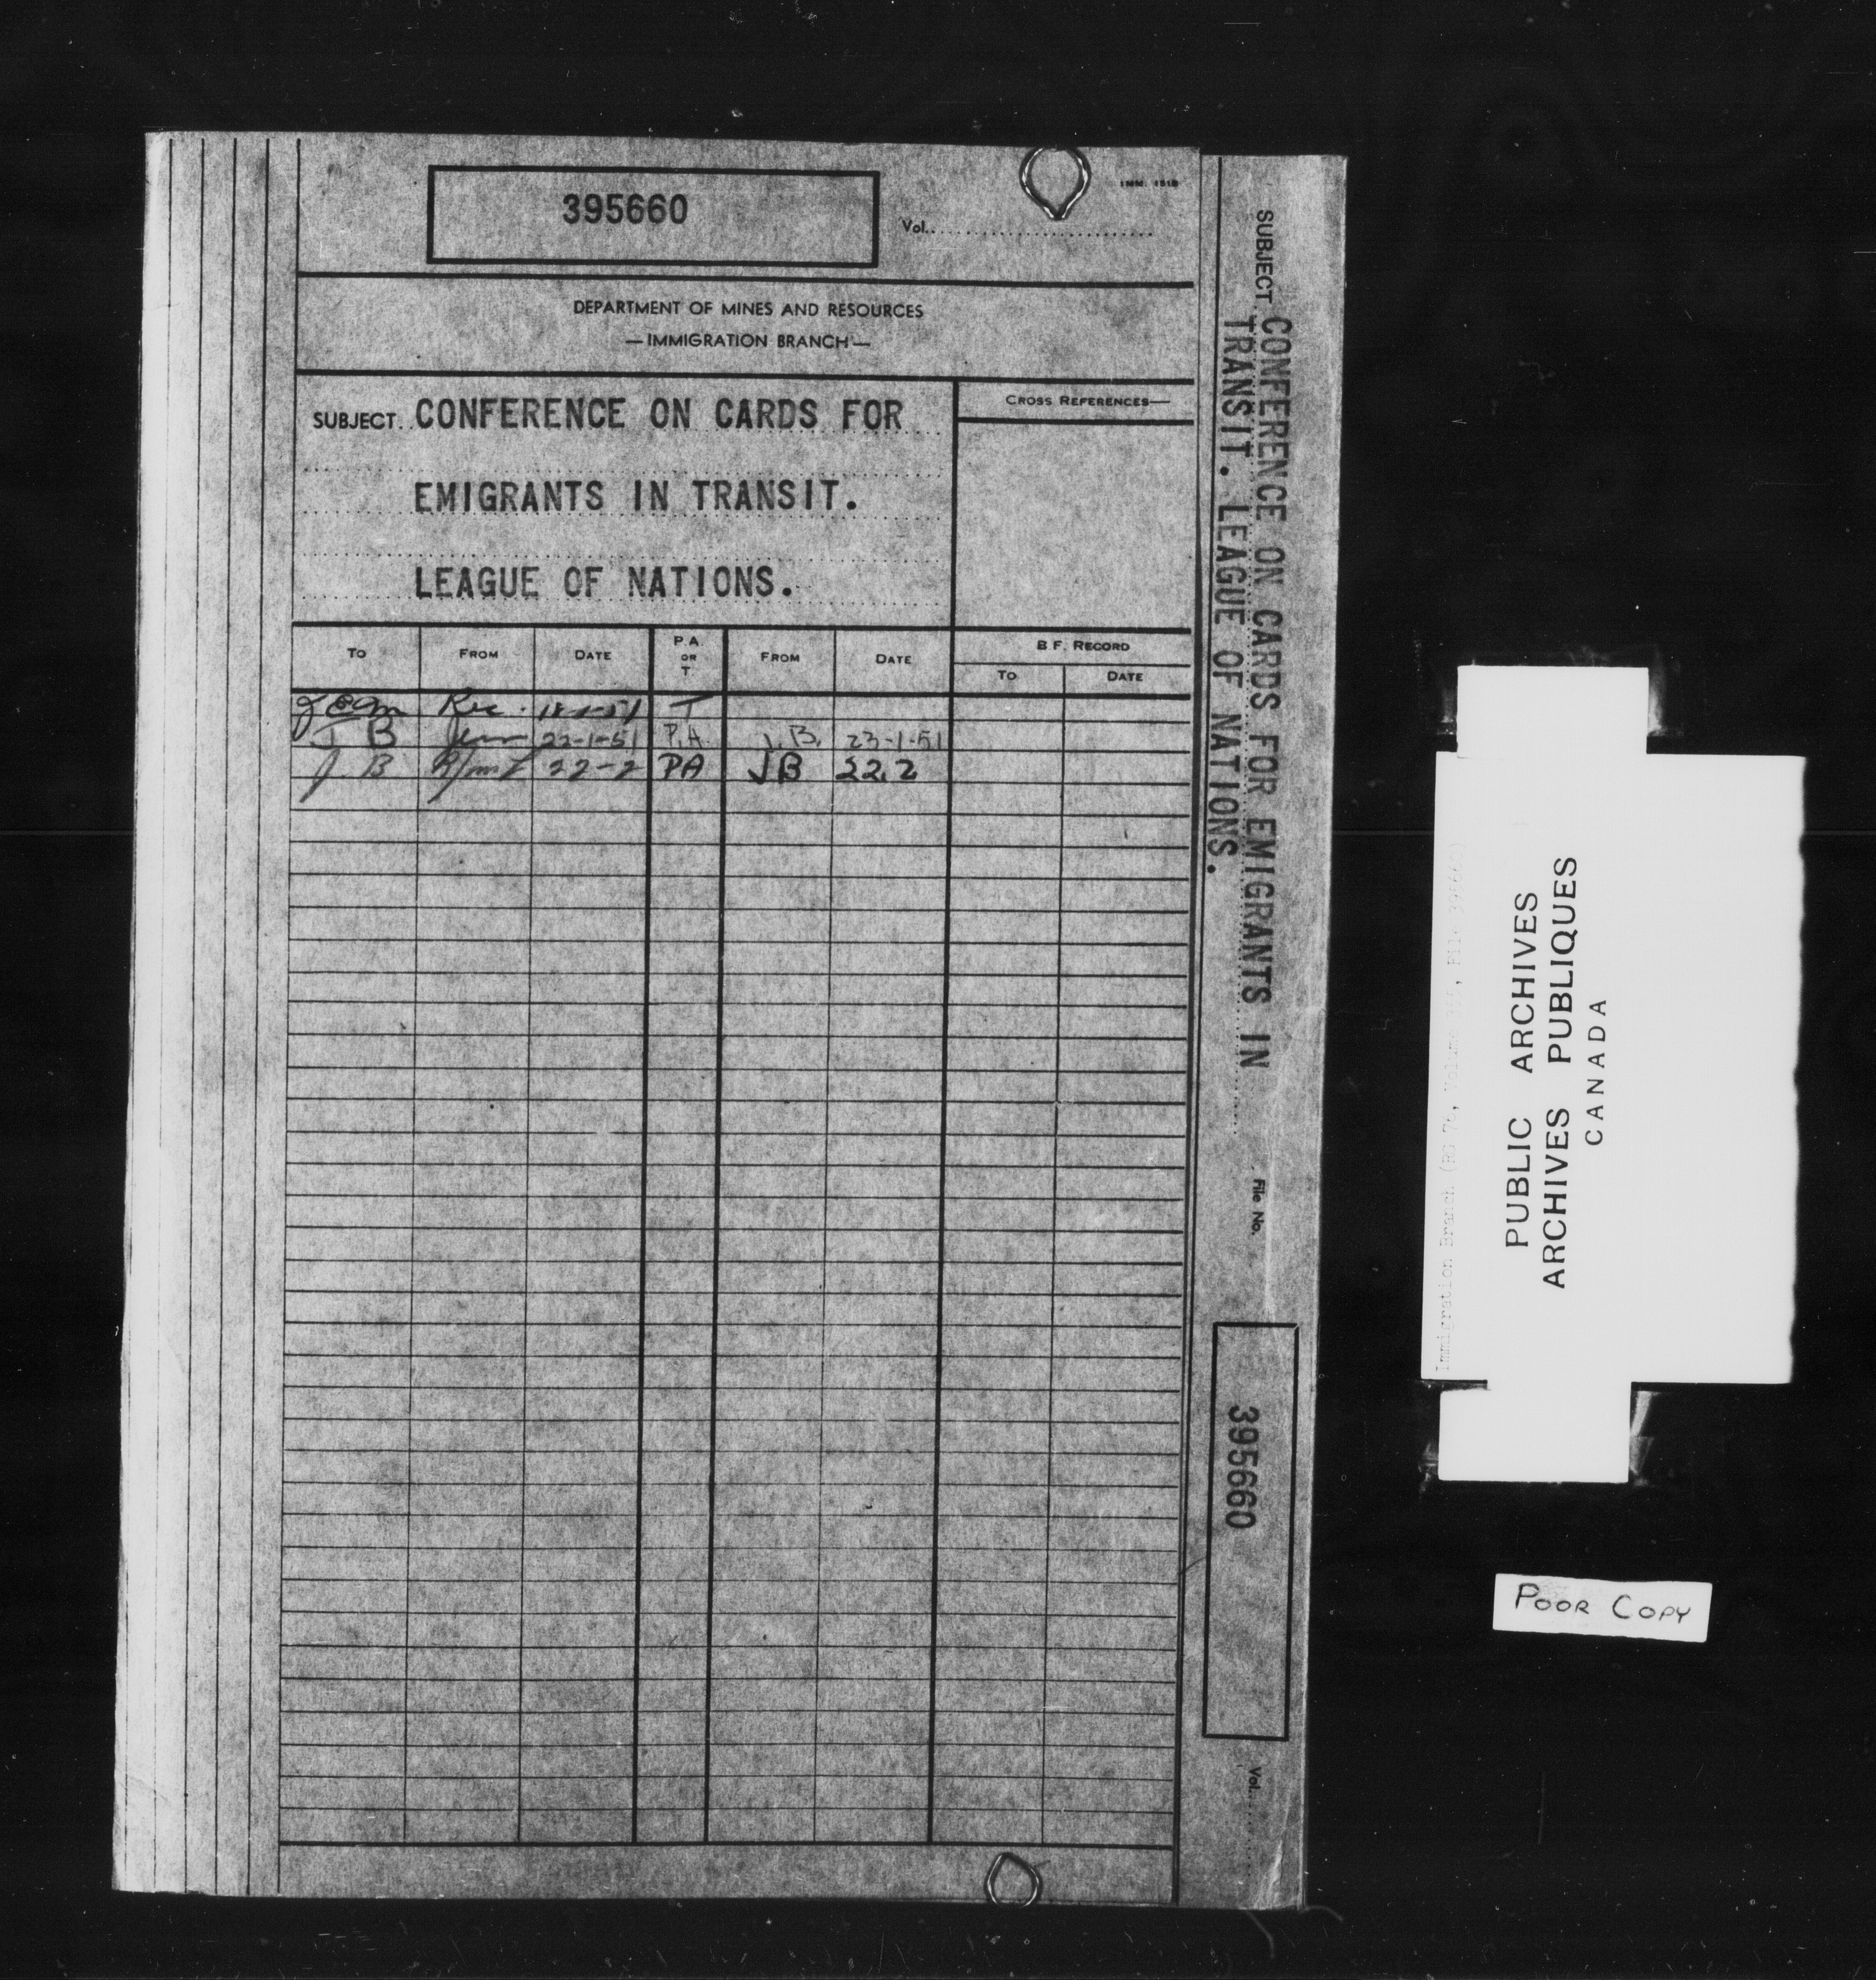 395660
Vol.
IMM. 1518
DEPARTMENT OF MINES AND RESOURCES
—IMMIGRATION BRANCH—
SUBJECT. CONFERENCE ON CARDS FOR
EMIGRANTS IN TRANSIT.
LEAGUE OF NATIONS.
CROSS REFERENCES—
TO FROM DATE P.A. OR T FROM DATE B.F. RECORD TO DATE
Rec. T
J B 22-1-51 P.A. J.B. 23-1-51
J. B 22-2 PA JB 22.2
SUBJECT. CONFERENCE ON CARDS FOR EMIGRANTS IN
TRANSIT. LEAGUE OF NATIONS.
File No.
395660
Vol.
Immigration Branch (RG 76, Volume File 395660)
PUBLIC ARCHIVES
ARCHIVES PUBLIQUES
CANADA
POOR COPY